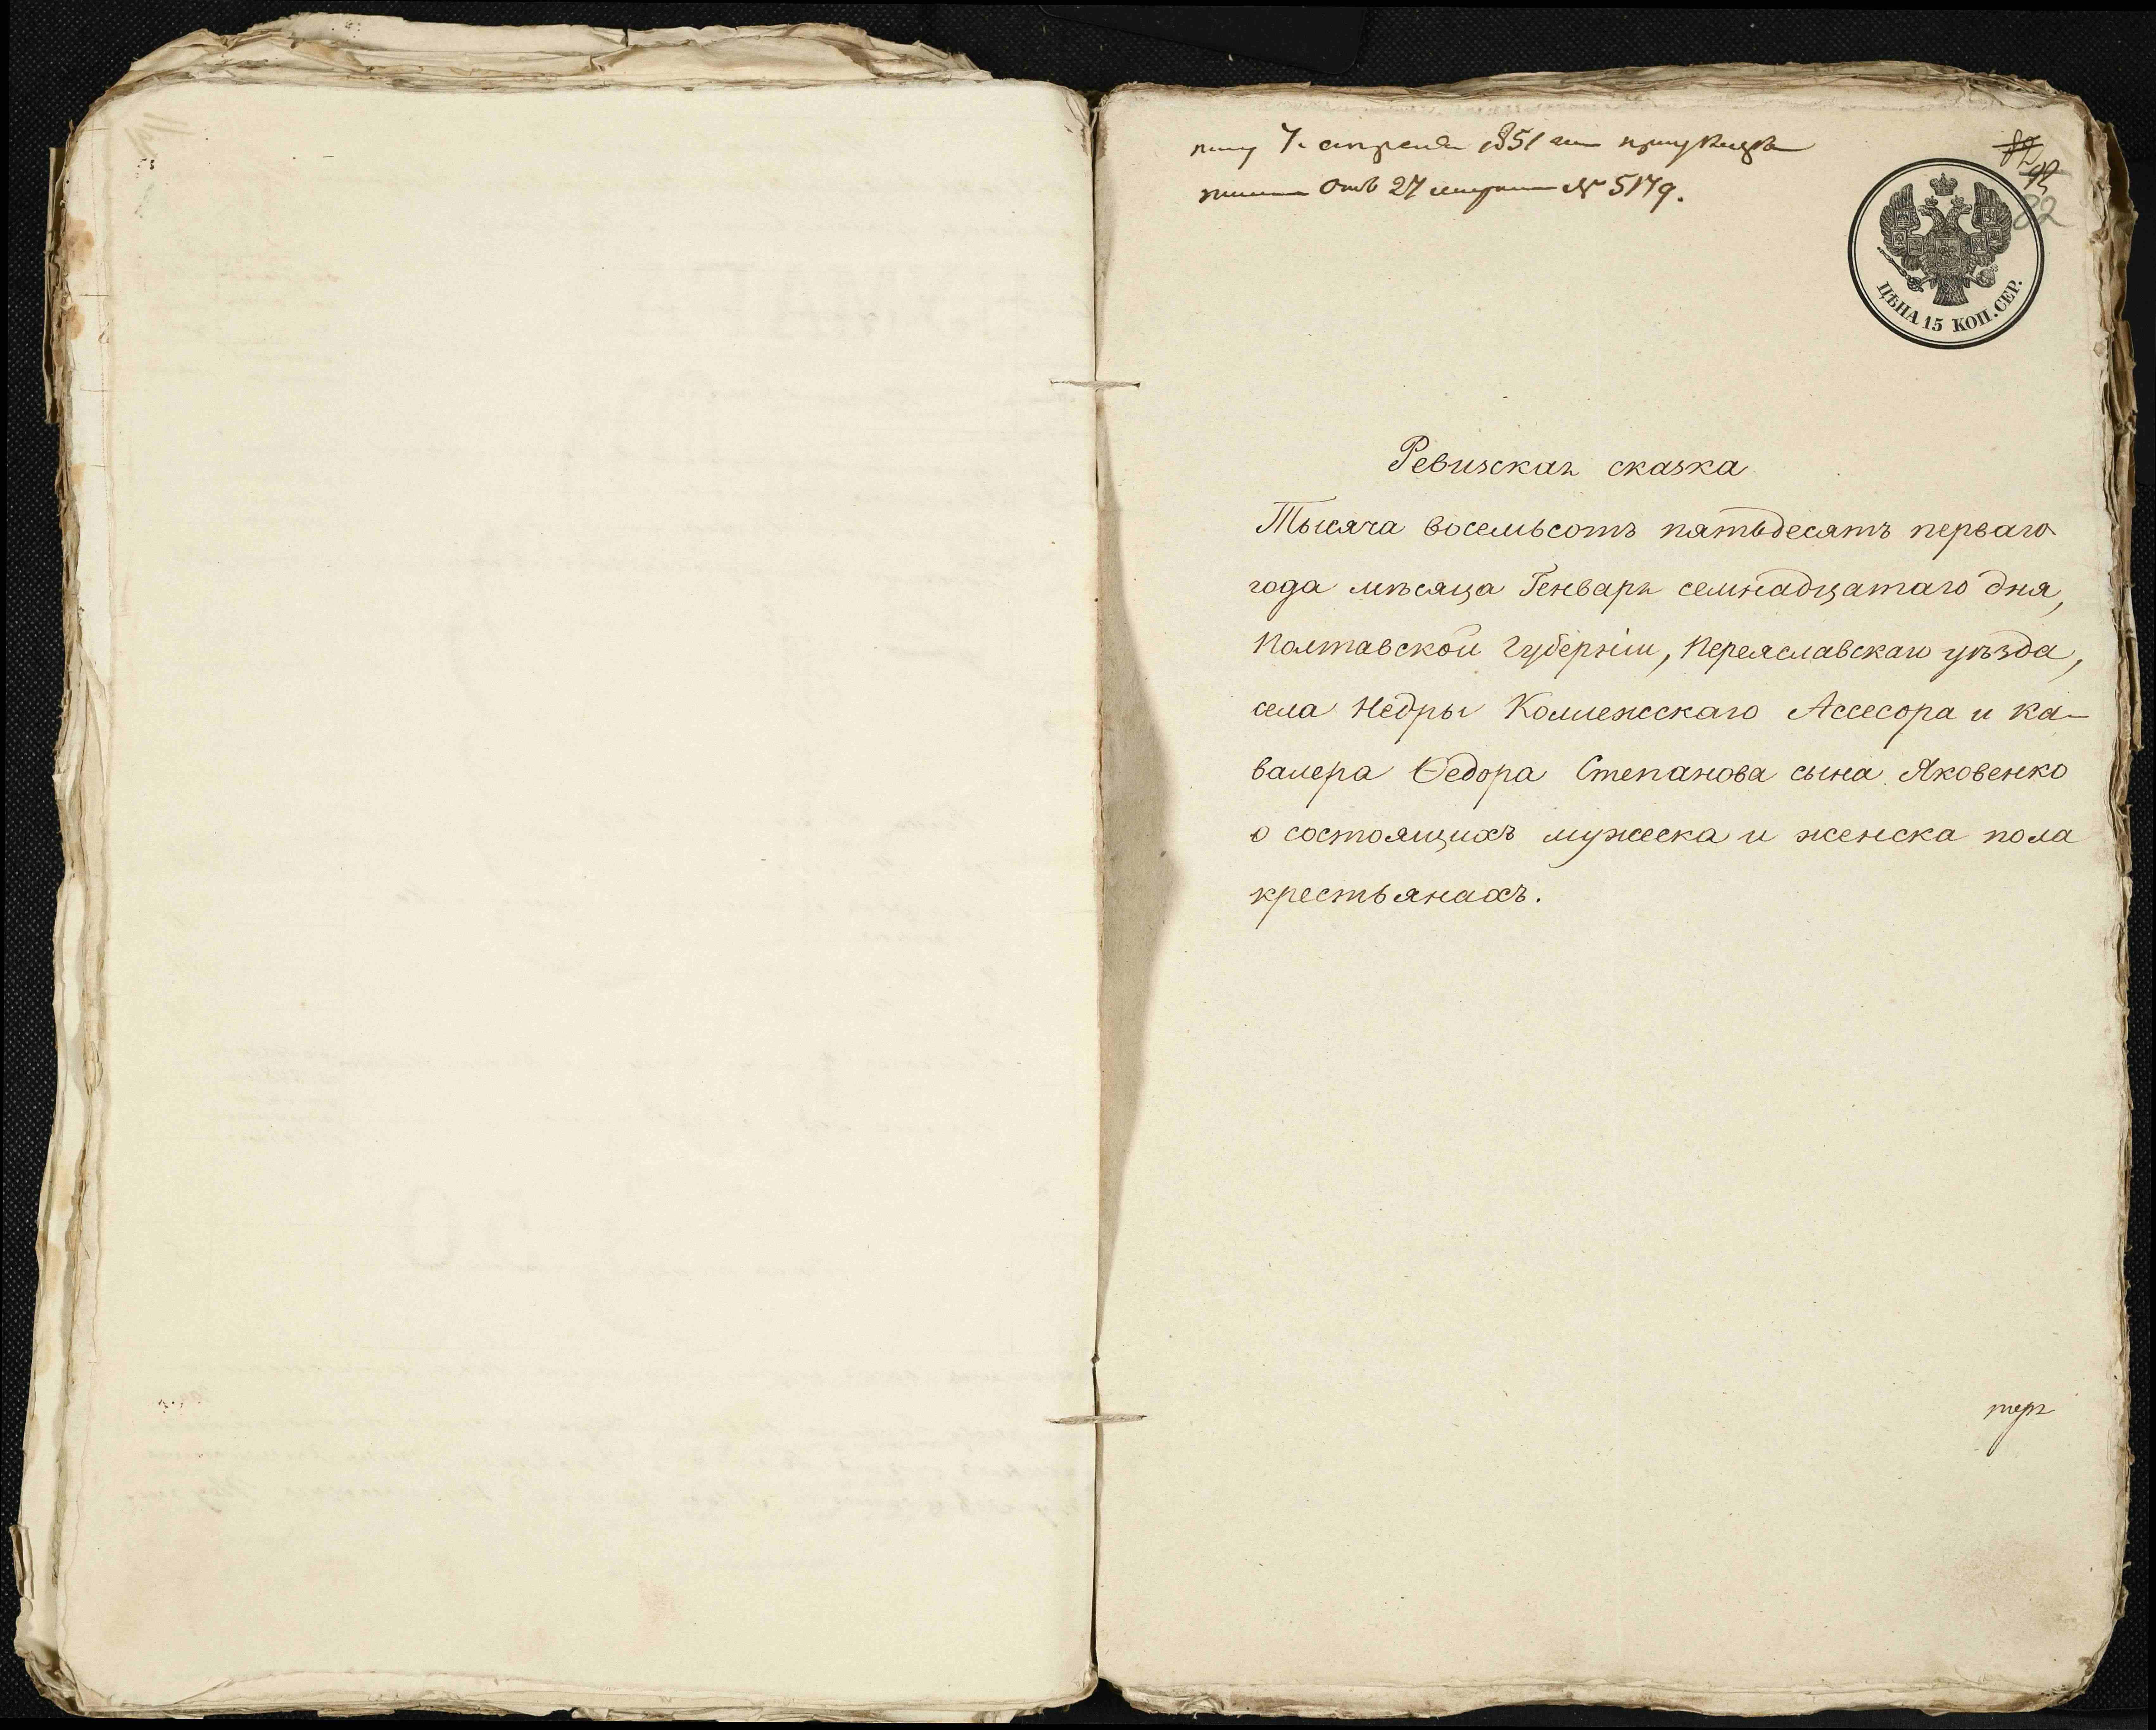 7 апреля 1851
отъ 27 марта № 5179.
82
ЦѢНА 15 КОП. СЕР.
Ревизская сказка
Тысяча восемьсотъ пятьдесятъ перваго
года мѣсяца Генваря семнадцатаго дня,
Полтавской губерніи, Переяславскаго уѣзда,
села Недры Коллежскаго Ассесора и ка-
валера Ѳедора Степанова сына Яковенко
о состоящихъ мужеска и женска пола
крестьянахъ.